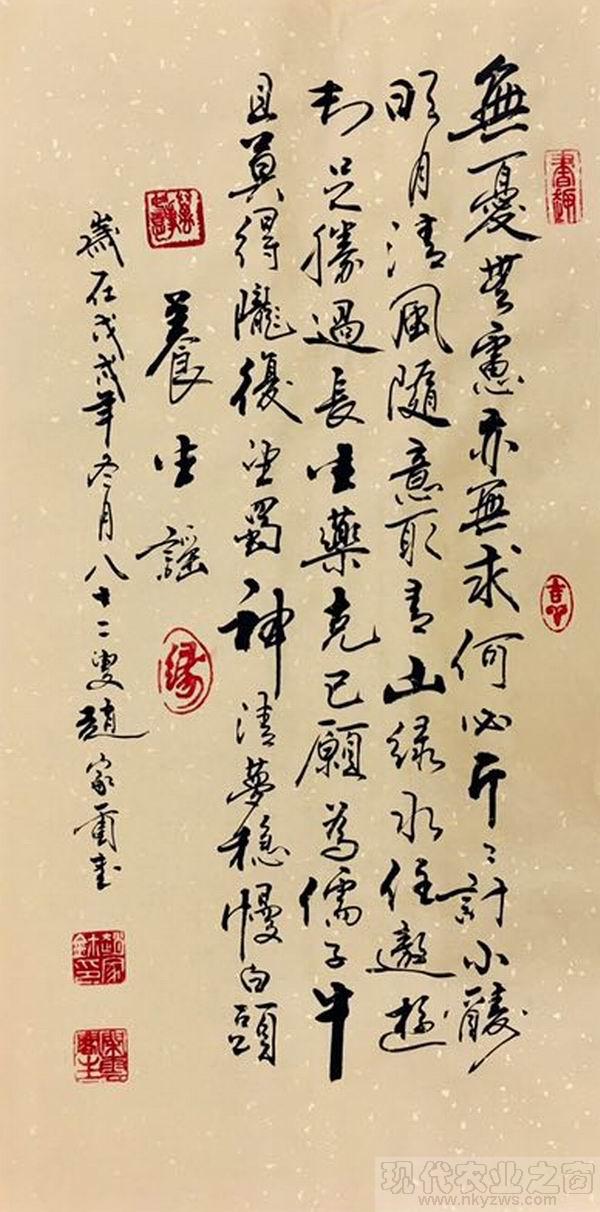 無憂無慮亦無求何必斤斤計小
明月清風隨意取青山綠水任遨遊
知足勝過長生藥克己願為儒子牛
且莫得隴復望蜀神清夢穩慢白頭
養生謠
緣
歲在戊戌年冬月八十二叟趙家書
现代农业之窗
www.nkyzws.com